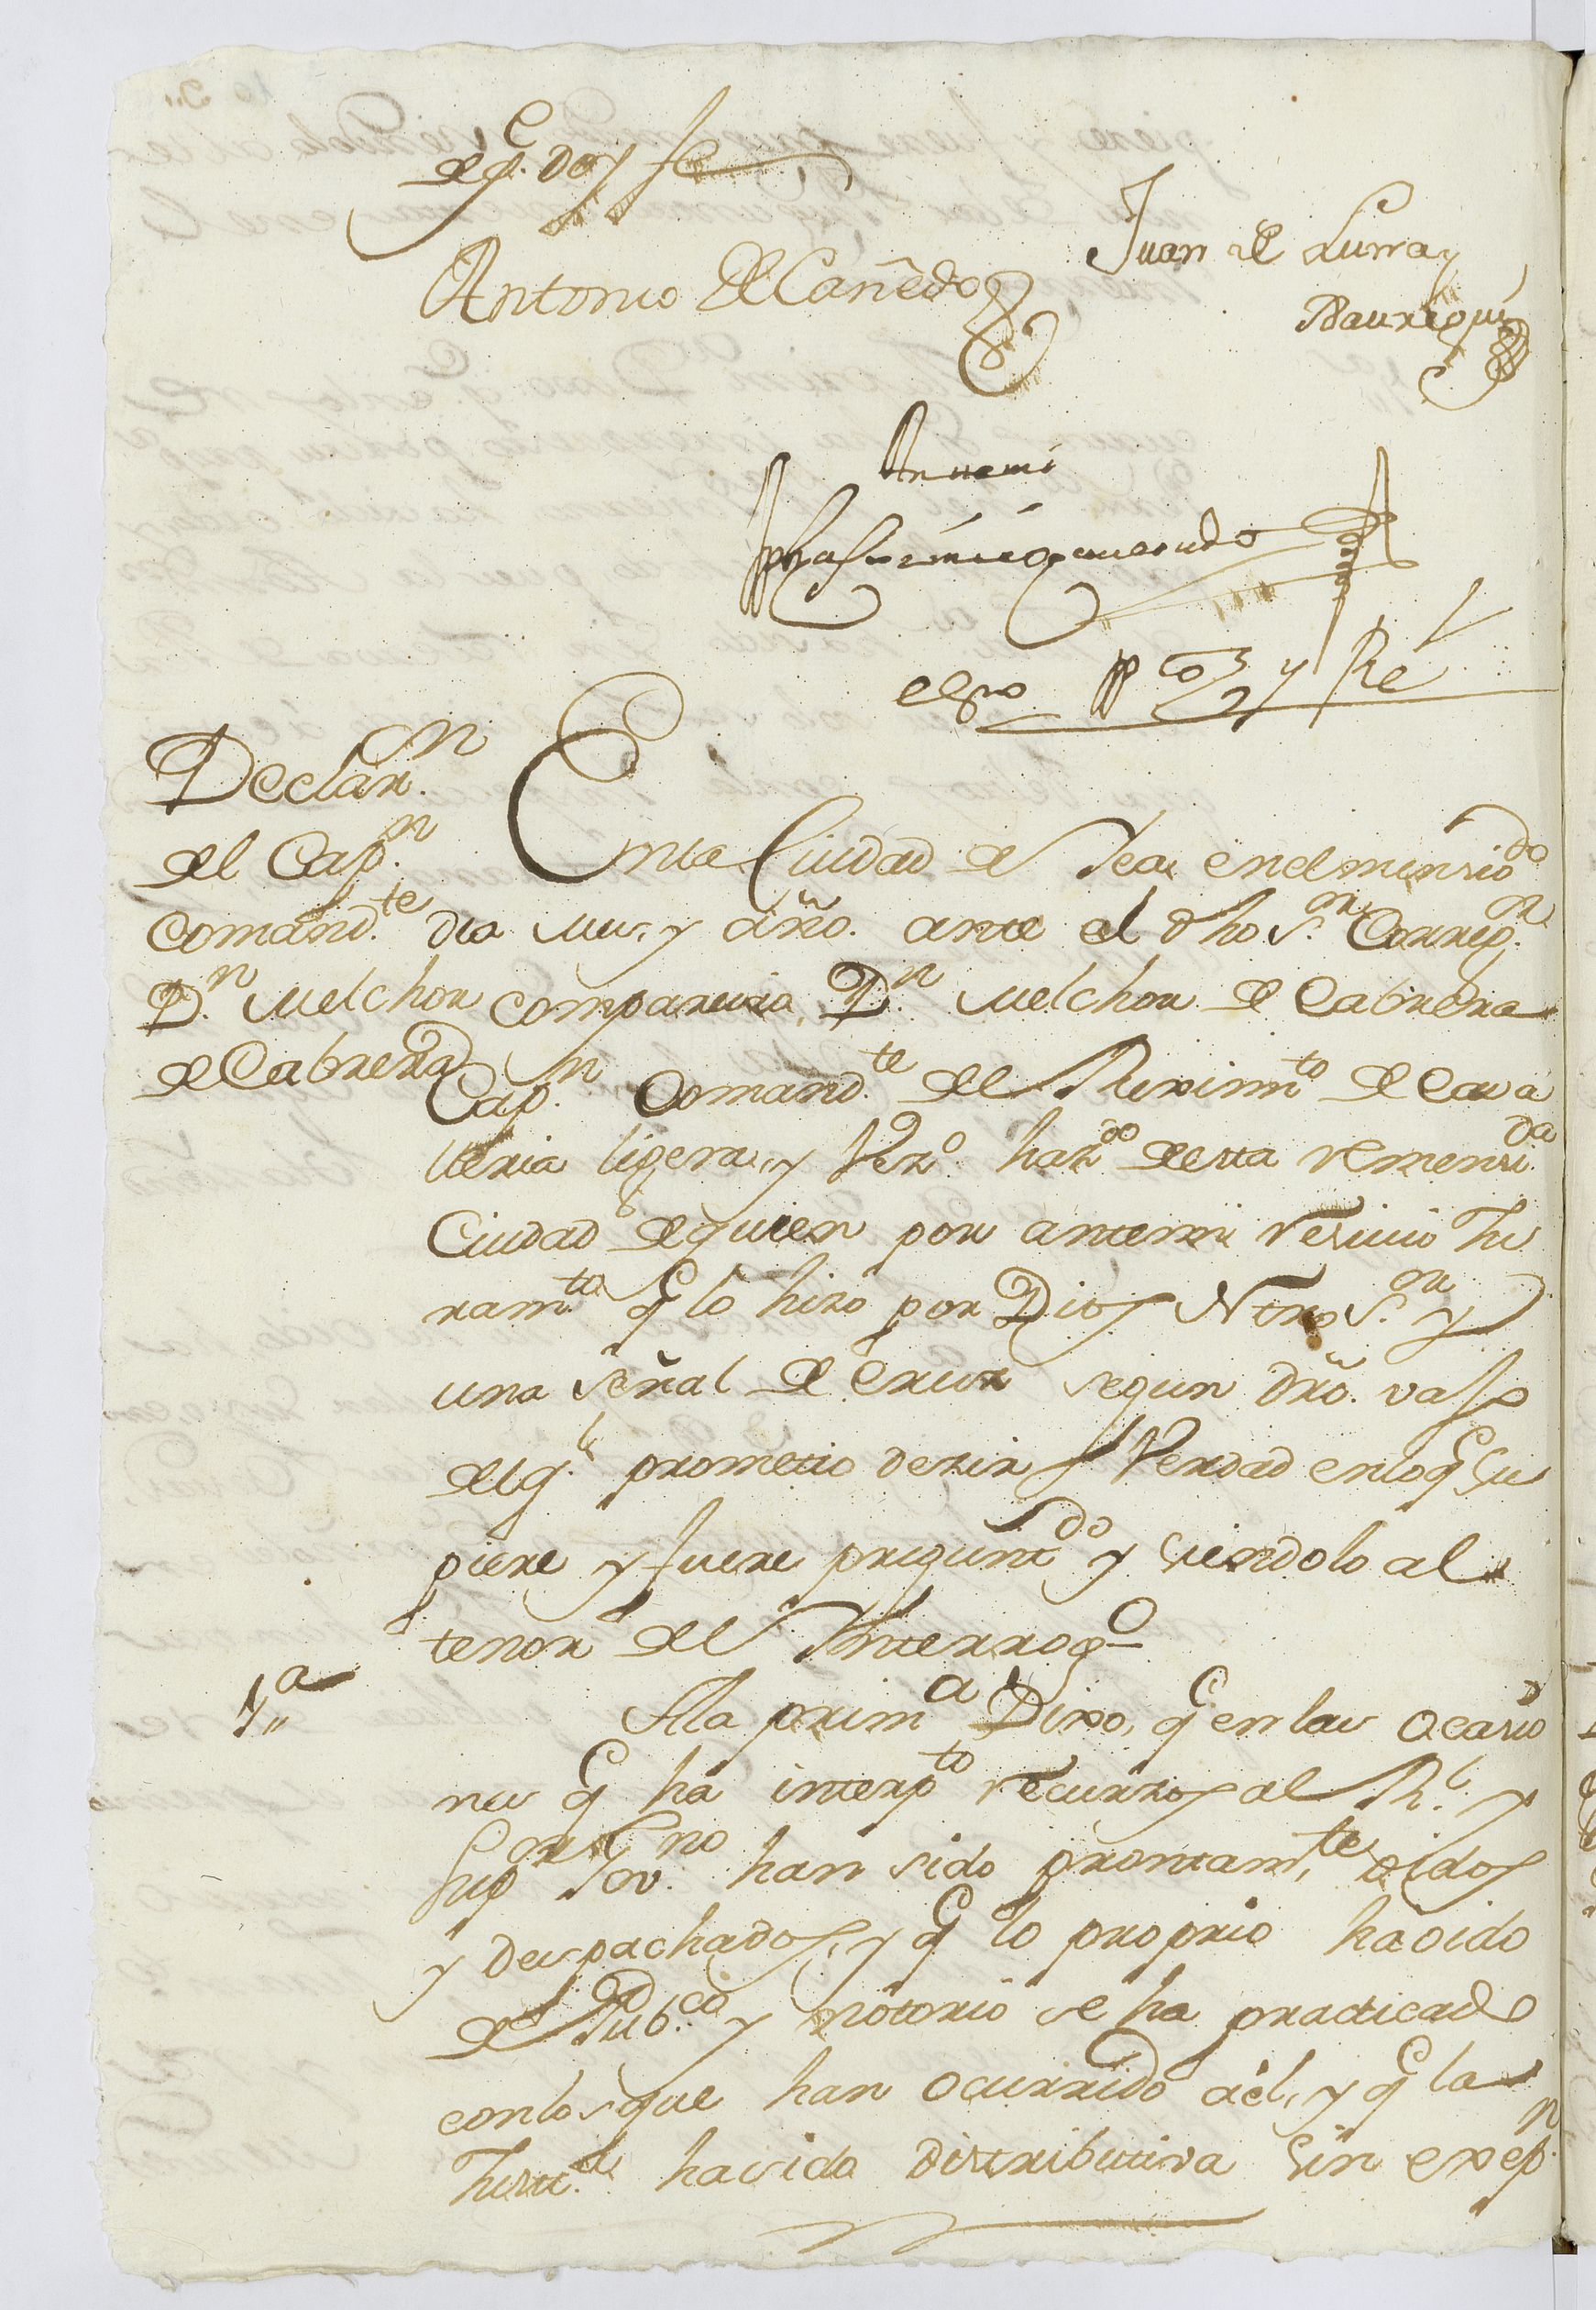 de q.e doy fe
Juan de Lurra y
Antonio de Cañedo
Jauregui
Ante mi
esno pp co y Re
Declar.n
del Cap.n
Comand.te
D.n Melchor
de Cabrera
En la Ciudad de Yca en el mensio.do
dia mes, y año. ante el dho S.or Correg.or
comparecio, D.n Melchor de Cabrera
Cap.n Comand.te del Reximi.to de Cava
lleria ligera, y Vez.o haz.do de esta remensi.da
Ciudad de quien por antemi resivio Ju
ram.to q lo hizo por Dios Ntro S.or y
una señal de Cruz segun dro. vajo
del q.l prometio dezir Verdad en lo q su
piere y fuere pregunt.do y siendolo al
tenor del Interrog.o
1.a
A la prim.a Dixo, q en las ocasio
nes q ha interp.to recurzos al R.l y
Sup.or Gov.no han sido prontam.te oidos
y despachados, y q lo proprio ha oido
de Pub.co y notorio se ha practicado
con los que han ocurrido a él, y q la
Justi.a ha sido distributiva sin exep.n